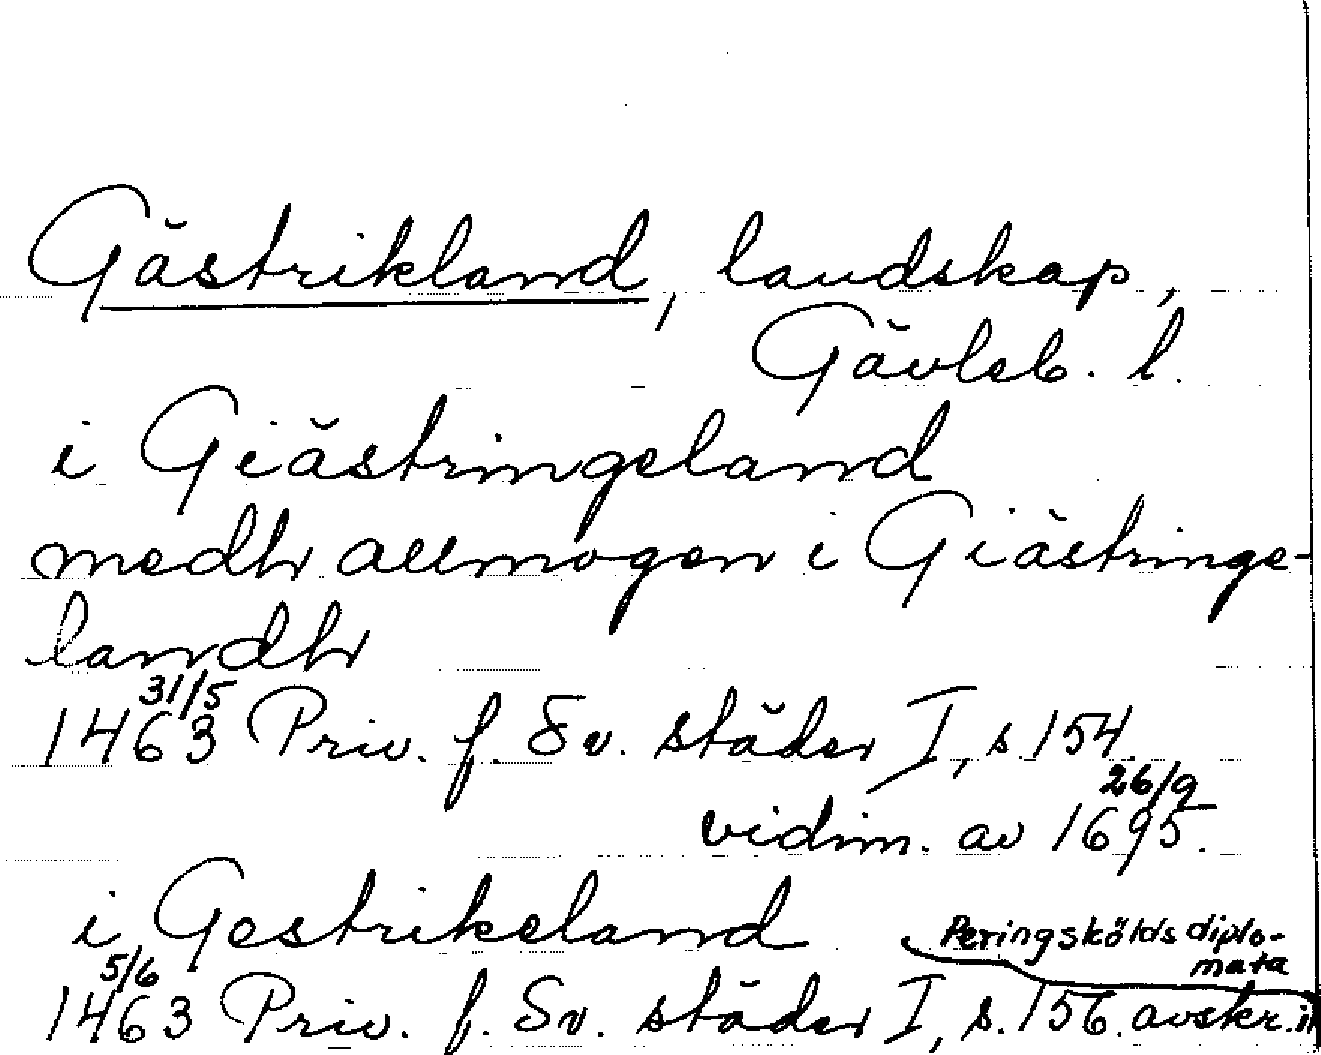 Gästrikland, landskap,
Gävleb. l.
i Giästringeland
medhr allmogen i Giästringe-
landhr
31/5
1463 Priv. f. Sv. städer I, s. 154.
26/9
vidim. av 1695.
i Gestrikeland
Peringskölds diplo-
mata
5/6
1463 Priv. f. Sv. städer I, s. 156. avskr. i